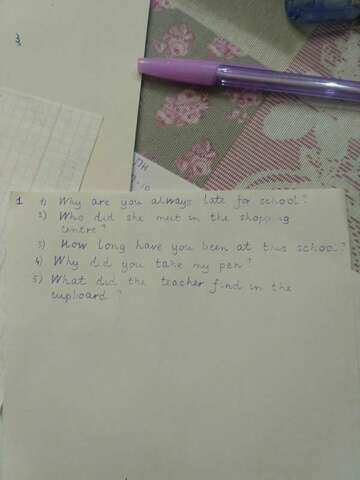 3
1 1) Why are you always late for school?
2) Who did she meet in the shopping
centre?
3) How long have you been at this school?
4) Why did you take my pen?
5) What did the teacher find in the
cupboard?